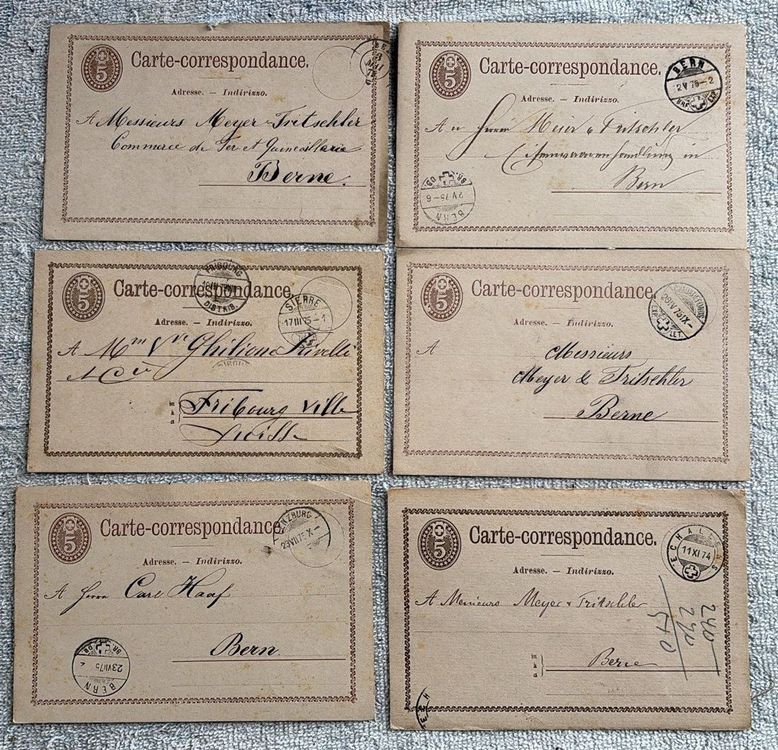 5
Carte-correspondance.
Adresse. — Indirizzo.
A Messieurs Meyer & Fritschler
Commerce de Fer et Quincaillerie
Berne.
5
Carte-correspondance.
BERN
2 V 75 – 2
Adresse. — Indirizzo.
An Herrn Meier & Fritschler
Eisenwarenhandlung in
Bern
BERN
2 V 75 – 6
5
FRIBOURG
DISTRIB.
Carte-correspondance.
SIERRE
17 III 75 – 1
Adresse. — Indirizzo.
A Mme Vve
et Cie
Fribourg Ville
Suisse
5
Carte-correspondance.
Adresse. — Indirizzo.
A
Messieurs
Meyer & Fritschler
Berne
5
Carte-correspondance.
23 VII 75 X –
Adresse. — Indirizzo.
A Herrn Carl Haaf
Bern
BERN
23 VII 75
5
Carte-correspondance.
ECHALLENS
11 XI 74
Adresse. — Indirizzo.
A Messieurs Meyer & Fritschler
Berne
240
270
510